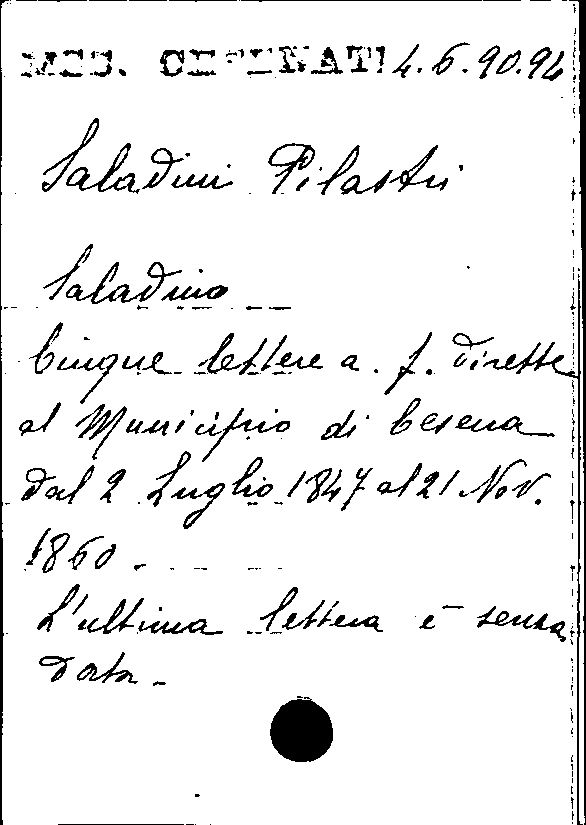 MSS. CESENATI 4.6.90.94
Saladini Pilastri
Saladino
Cinque lettere a. f. dirette
al Municipio di Cesena
dal 2 Luglio 1847 al 21 Nov.
1860.
L'ultima lettera è senza
data.